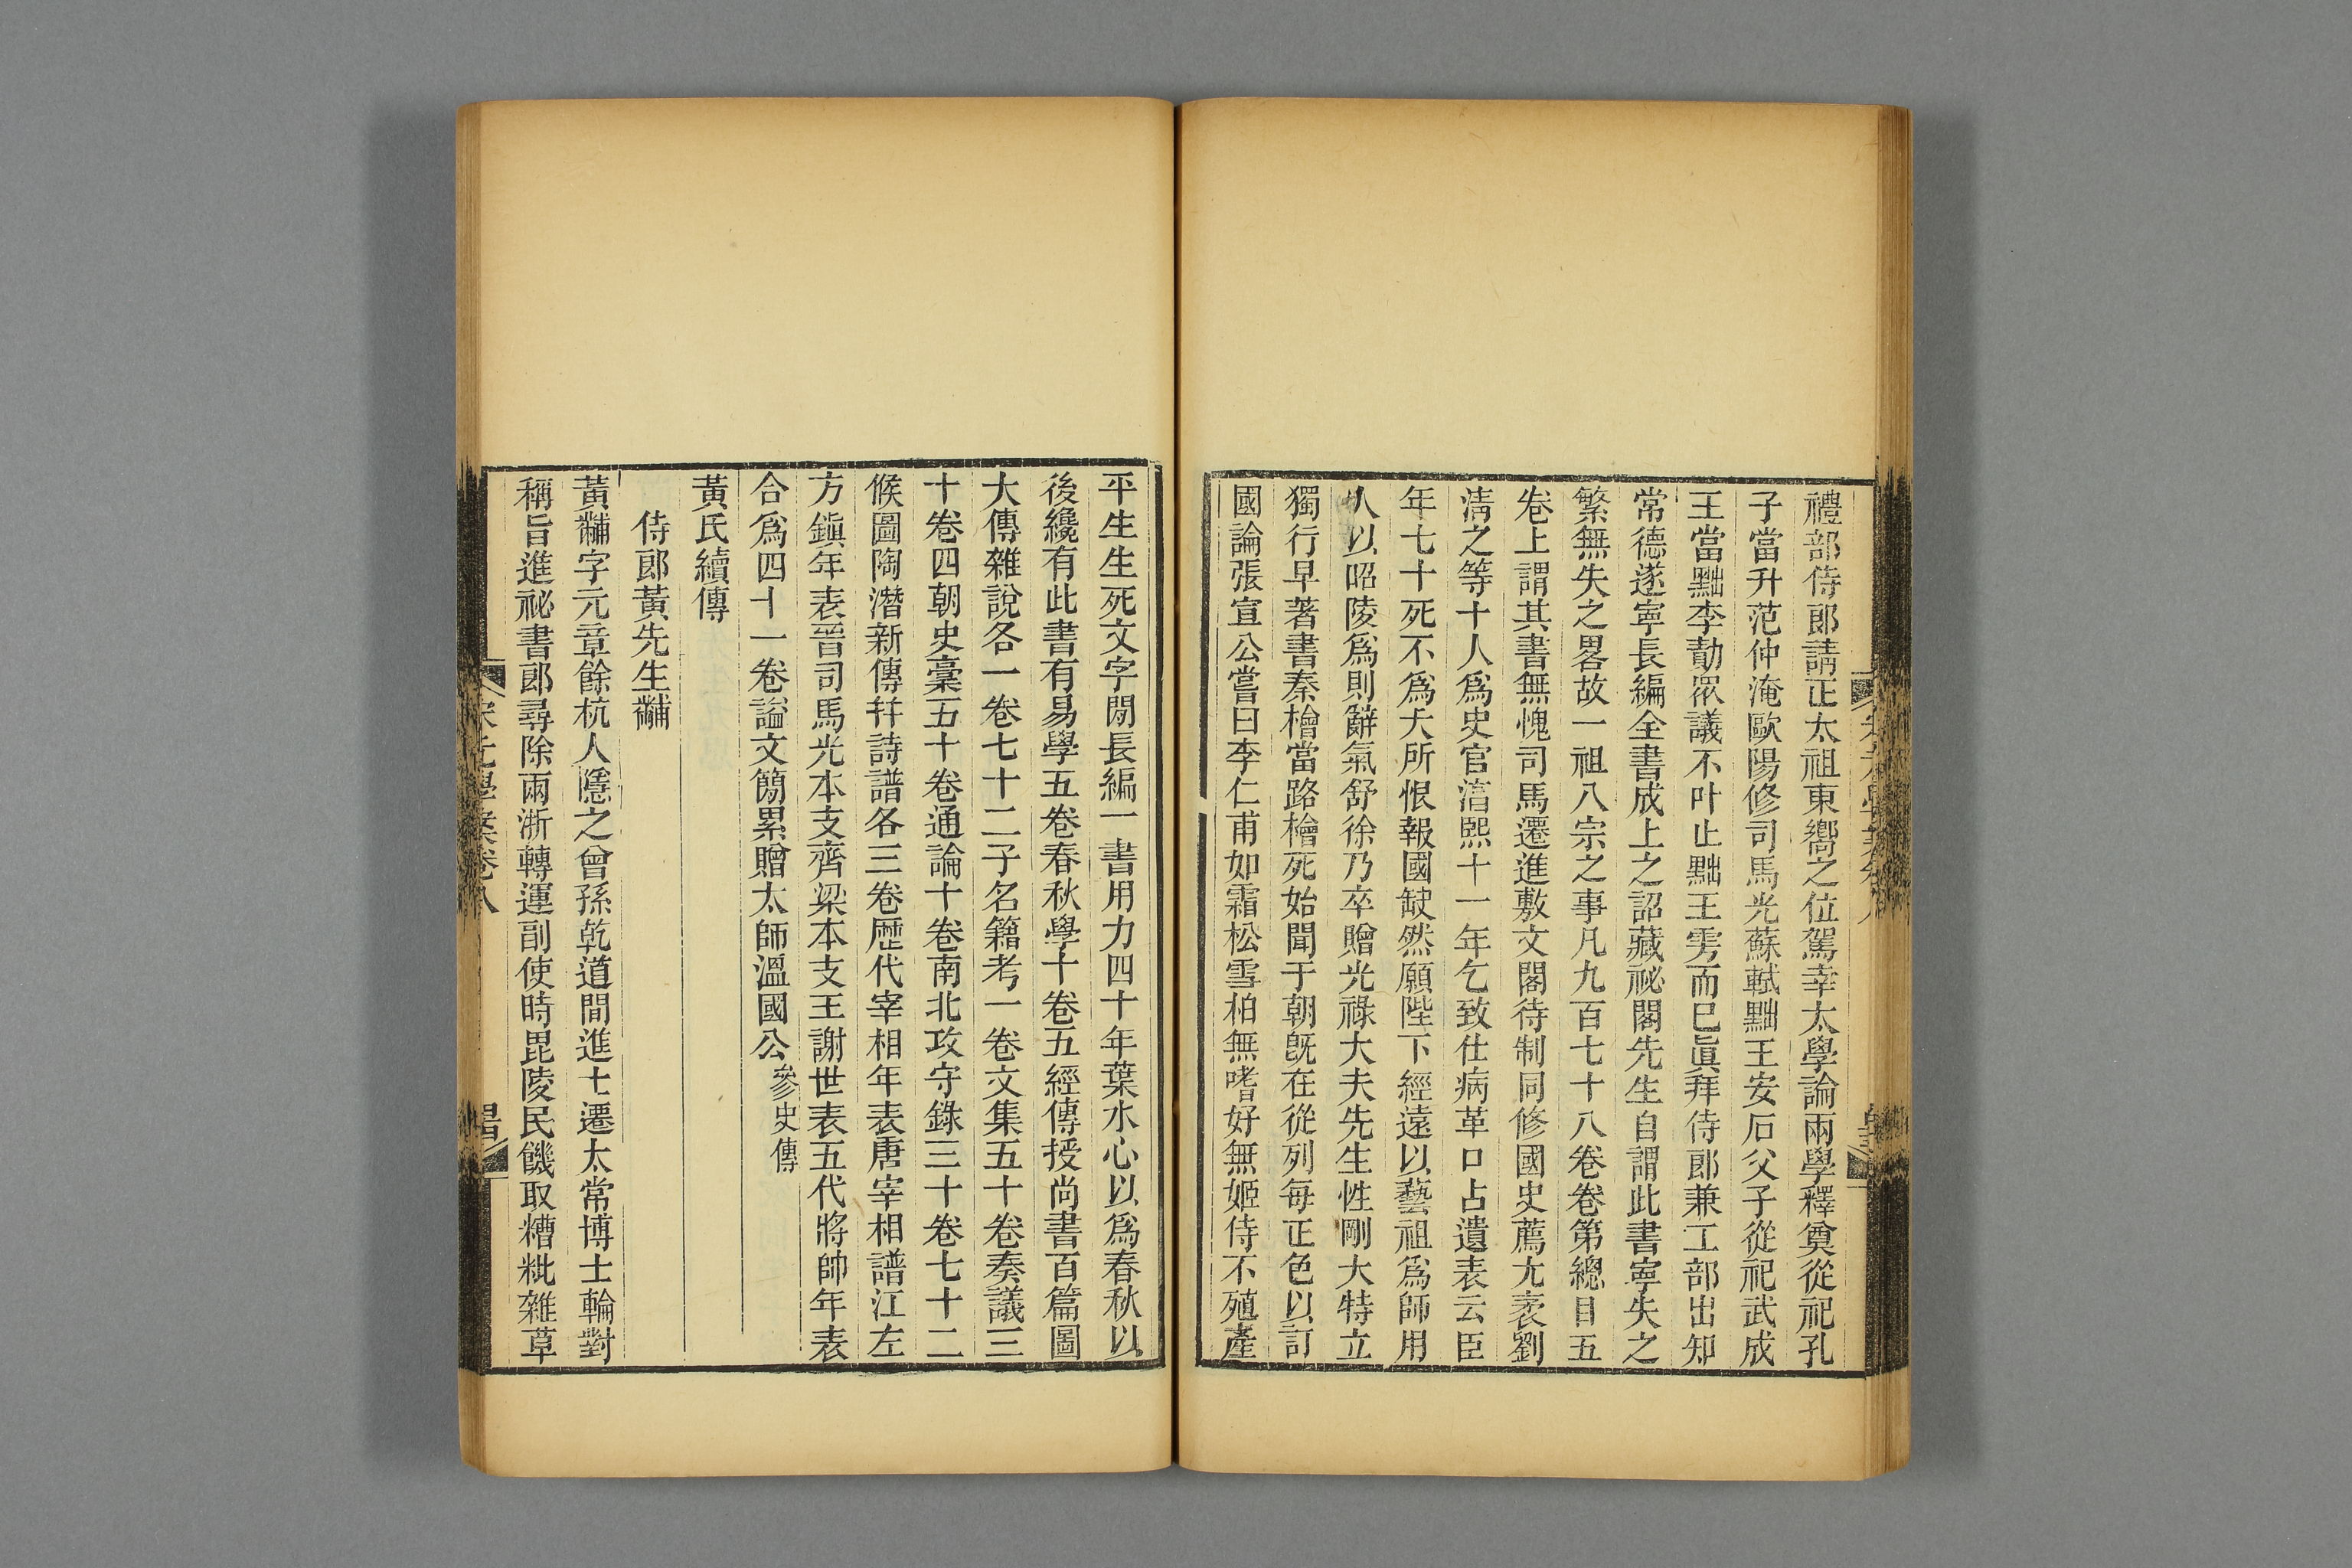 禮部侍郎請正太祖東嚮之位駕幸太學論兩學釋奠從祀孔
子當升范仲淹歐陽修司馬光蘇軾黜王安石父子從祀武成
王當黜李勣眾議不叶止黜王雱而已眞拜侍郎兼工部出知
常德遂寧長編全書成上之詔藏祕閣先生自謂此書寧失之
繁無失之畧故一祖八宗之事凡九百七十八卷卷第總目五
卷上謂其書無愧司馬遷進敷文閣待制同修國史薦尤袤劉
淸之等十人爲史官淳熙十一年乞致仕病革口占遺表云臣
年七十死不爲夭所恨報國缺然願陛下經遠以藝祖爲師用
人以昭陵爲則辭氣舒徐乃卒贈光祿大夫先生性剛大特立
獨行早著書秦檜當路檜死始聞于朝旣在從列每正色以訂
國論張宣公嘗曰李仁甫如霜松雪柏無嗜好無姬侍不殖產
平生生死文字閒長編一書用力四十年葉水心以爲春秋以
後纔有此書有易學五卷春秋學十卷五經傳授尚書百篇圖
大傳雜說各一卷七十二子名籍考一卷文集五十卷奏議三
十卷四朝史稾五十卷通論十卷南北攻守錄三十卷七十二
候圖陶潛新傳幷詩譜各三卷歷代宰相年表唐宰相譜江左
方鎭年表晉司馬光本支齊梁本支王謝世表五代將帥年表
合爲四十一卷謚文簡累贈太師溫國公參史傳
黃氏續傳
侍郎黃先生黼
黃黼字元章餘杭人隱之曾孫乾道間進士遷太常博士輪對
稱旨進祕書郎尋除兩浙轉運副使時毘陵民饑取糟粃雜草
宋元學案卷八